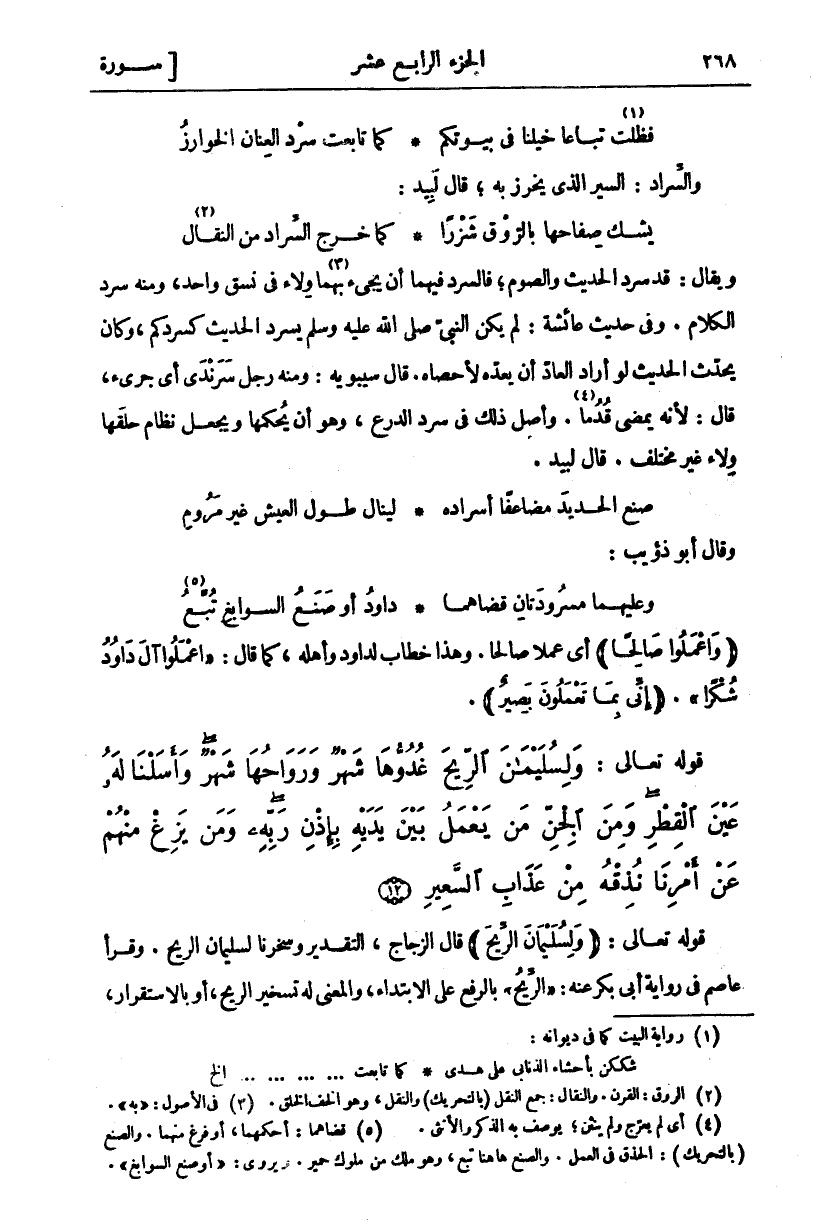 ٢٦٨ الجزء الرابع عشر [ سورة
فظلت تباعا خيلنا فى بيوتكم (١) * كما تابعت سرْد العِنان الخوارزُ
والسَّراد : السير الذى يخرز به ؛ قال لَبِيد :
يشك صِفاحها بالرَّوْق شَزْرًا * كما خرج السَّراد من النقال (٢)
ويقال : قد سرد الحديث والصوم ؛ فالسرد فيهما أن يجىء بهما (٣) ولاء فى نسق واحد، ومنه سرد
الكلام . وفى حديث عائشة : لم يكن النبىّ صلى الله عليه وسلم يسرد الحديث كسردكم ، وكان
يحدّث الحديث لو أراد العادّ أن يعدّه لأحصاه. قال سيبويه : ومنه رجل سَرَنْدَى أى جرىء،
قال : لأنه يمضى قُدُما (٤) . وأصل ذلك فى سرد الدرع ، وهو أن يُحكمها ويجعل نظام حلَقها
ولاء غير مختلف . قال لبيد .
صنع الحديدَ مضاعفًا أسراده * لينال طول العيش غير مَرُومِ
وقال أبو ذؤيب :
وعليهما مسرُودَتانِ قضاهما * داودُ أو صَنَعُ السوابغِ تُبّعُ (٥)
﴿ وَاعْمَلُوا صَالِحًا ﴾ أى عملا صالحا . وهذا خطاب لداود وأهله ، كما قال : «اعْمَلُوا آلَ دَاوُدَ
شُكْرًا» . ﴿ إِنِّى بِمَا تَعْمَلُونَ بَصِيرٌ ﴾ .
قوله تعالى : وَلِسُلَيْمَٰنَ ٱلرِّيحَ غُدُوُّهَا شَهْرٌ وَرَوَاحُهَا شَهْرٌۖ وَأَسَلْنَا لَهُۥ
عَيْنَ ٱلْقِطْرِۖ وَمِنَ ٱلْجِنِّ مَن يَعْمَلُ بَيْنَ يَدَيْهِ بِإِذْنِ رَبِّهِۦۖ وَمَن يَزِغْ مِنْهُمْ
عَنْ أَمْرِنَا نُذِقْهُ مِنْ عَذَابِ ٱلسَّعِيرِ ١٢
قوله تعالى : ﴿ وَلِسُلَيْمَانَ الرِّيحَ ﴾ قال الزجاج ، التقدير وسخرنا لسليمان الريح . وقرأ
عاصم فى رواية أبى بكر عنه : «الرِّيحُ» بالرفع على الابتداء، والمعنى له تسخير الريح، أو بالاستقرار،
(١) رواية البيت كما فى ديوانه :
شككن بأحشاء الذنابى على هدى * كما تابعت ... ... ... ... الخ
(٢) الروق : القرن . والنقال : جمع النقل (بالتحريك) والنقل ، وهو الخف الخلق . (٣) فى الأصول : «به» .
(٤) أى لم يعرّج ولم ينثن ؛ يوصف به الذكر والأنثى . (٥) قضاهما : أحكمهما، أو فرغ منهما . والصنع
(بالتحريك) : الحذق فى العمل . والصنع هاهنا تبع ، وهو ملك من ملوك حمير . ويروى : «أو صنع السوابغ» .